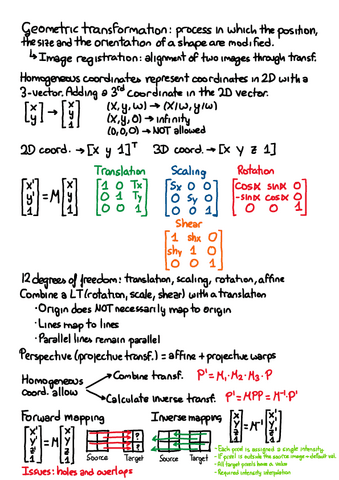 Geometric transformation: process in which the position,
the size and the orientation of a shape are modified.
↳ Image registration: alignment of two images through transf.
Homogeneous coordinates represent coordinates in 2D with a
3-vector. Adding a 3rd coordinate in the 2D vector.
[x y] → [x y 1]
(x, y, w) → (x/w, y/w)
(x, y, 0) → infinity
(0,0,0) → NOT allowed
2D coord. → [x y 1]^T 3D coord. → [x y z 1]
Translation Scaling Rotation
[x' y' 1] = M [x y 1]
[1 0 Tx
0 1 Ty
0 0 1]
[Sx 0 0
0 Sy 0
0 0 1]
[cosα sinα 0
-sinα cosα 0
0 0 1]
Shear
[1 shx 0
shy 1 0
0 0 1]
12 degrees of freedom: translation, scaling, rotation, affine
Combine a LT (rotation, scale, shear) with a translation
• Origin does NOT necessarily map to origin
• Lines map to lines
• Parallel lines remain parallel
Perspective (projective transf.) = affine + projective warps
Homogeneous
coord. allow
Combine transf. P' = M₁·M₂·M₃·P
Calculate inverse transf. P' = MPP = M⁻¹·P'
Forward mapping Inverse mapping
[x' y' z' 1] = M [x y z 1]
? ? ?
Source Target
Issues: holes and overlaps
Source Target
[x y z 1] = M⁻¹ [x' y' z' 1]
- Each pixel is assigned a single intensity
- If point is outside the source image → default val.
- All target pixels have a value
- Required intensity interpolation